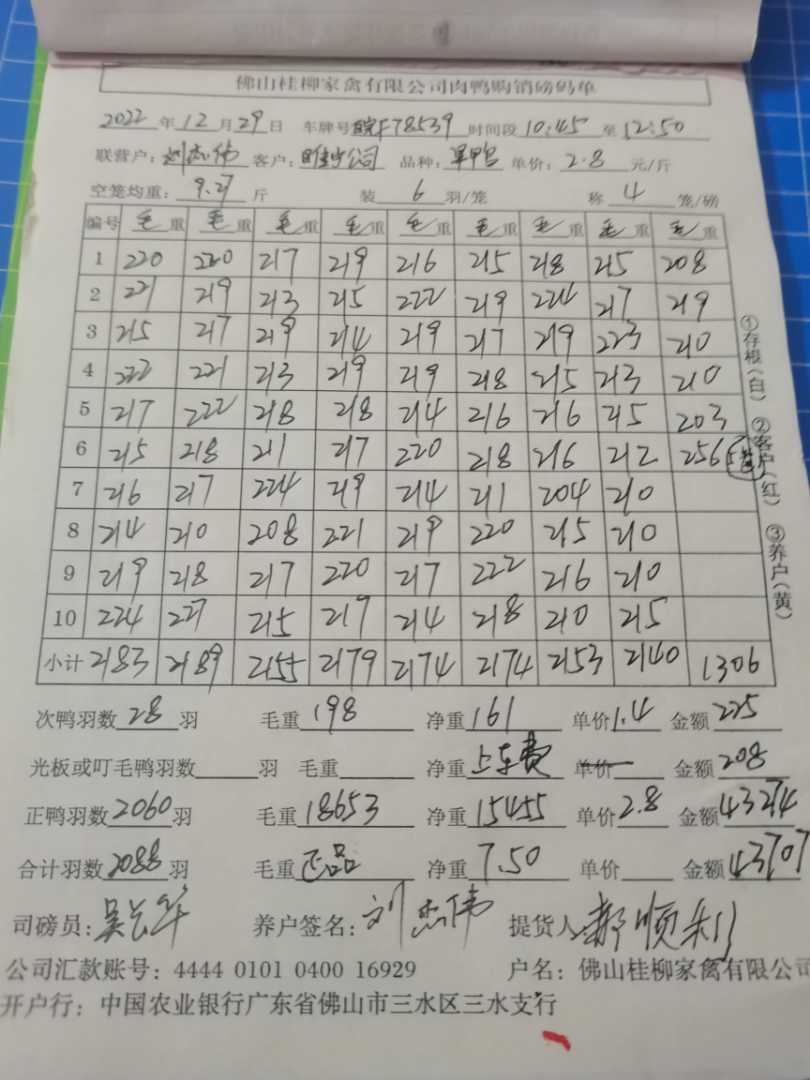 佛山桂柳家禽有限公司肉鸭购销磅码单
2022年12月29日 车牌号皖F78539 时间段10:45至12:50
联营户:刘杰伟 客户: 公司 品种: 单价:2.8元/斤
空笼均重:9.27斤 装6羽/笼 称4笼/磅
编号 毛重 毛重 毛重 毛重 毛重 毛重 毛重 毛重 毛重
1 220 220 217 219 216 215 218 215 208
2 221 219 213 215 222 219 224 217 219
3 215 217 219 214 219 217 219 223 210
4 222 221 213 219 219 218 215 213 210
5 217 222 218 218 214 216 216 215 203
6 215 218 211 217 220 218 216 212 256
7 216 217 224 219 214 211 204 210
8 214 210 208 221 219 220 215 210
9 219 218 217 220 217 222 216 210
10 224 227 215 217 214 218 210 215
小计 2183 2189 2155 2179 2174 2174 2153 2140 1306
①存根(白) ②客户(红) ③养户(黄)
次鸭羽数28羽 毛重198 净重161 单价1.4 金额225
光板或叮毛鸭羽数 羽 毛重 净重上车费 单价 金额208
正鸭羽数2060羽 毛重18653 净重15455 单价2.8 金额43274
合计羽数2088羽 毛重正品 净重7.50 单价 金额43707
司磅员: 养户签名:刘杰伟 提货人:郝顺利
公司汇款账号:4444 0101 0400 16929 户名:佛山桂柳家禽有限公司
开户行:中国农业银行广东省佛山市三水区三水支行